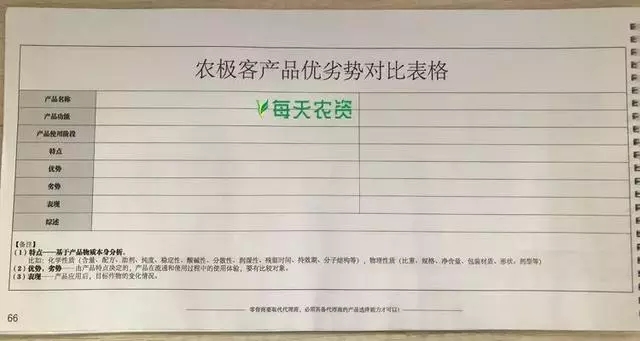 农极客产品优劣势对比表格
产品名称
每天农资
产品功能
产品使用阶段
特点
优势
劣势
表现
综述
【备注】
（1）特点——基于产品物质本身分析。
比如：化学性质（含量、配方、助剂、纯度、稳定性、酸碱性、分散性、润湿性、残留时间、持效期、分子结构等），物理性质（比重、规格、净含量、包装材质、形状、剂型等）
（2）优势、劣势——由产品特点决定的，产品在流通和使用过程中的使用体验，要有比较对象。
（3）表现——产品应用后，目标作物的变化情况。
零售商要取代代理商，必须具备代理商的产品选择能力才可以！
66